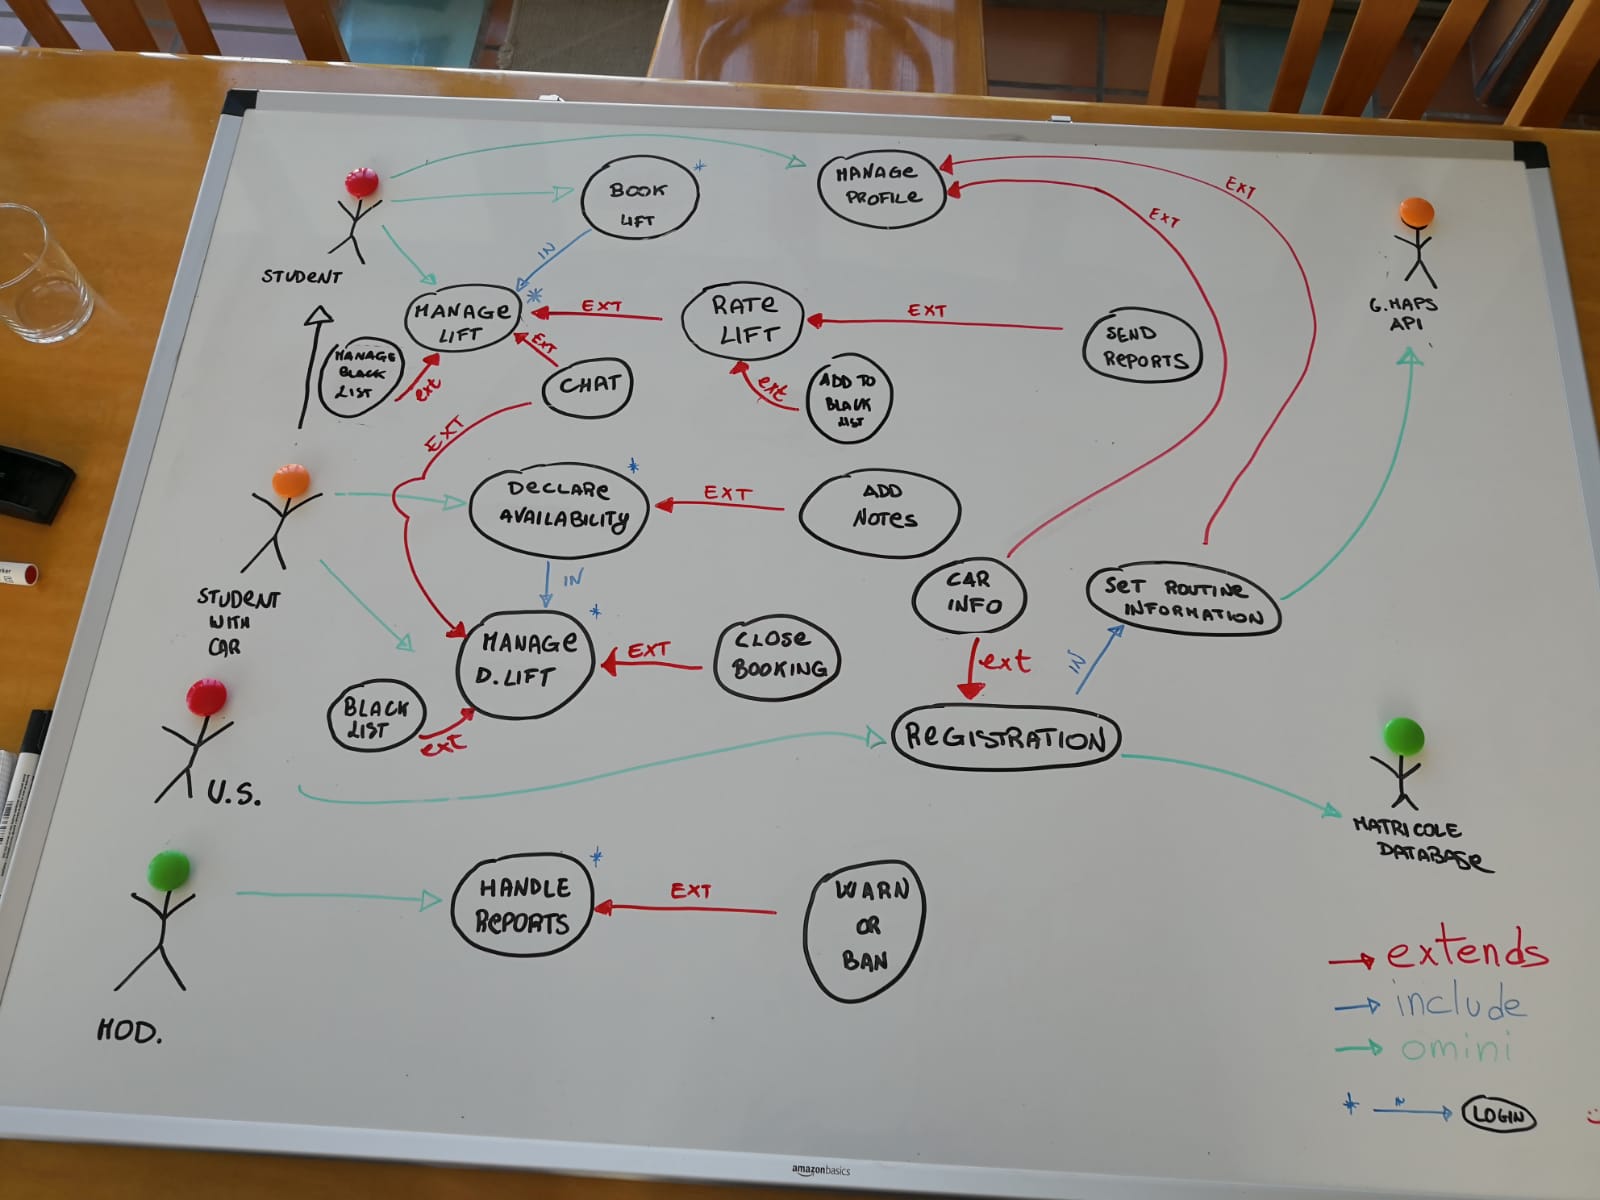 BOOK
LIFT
*
MANAGE
PROFILE
EXT
EXT
STUDENT
IN
MANAGE
LIFT
*
EXT
RATE
LIFT
EXT
SEND
REPORTS
G.MAPS
API
MANAGE
BLACK
LIST
ext
EXT
CHAT
ext
ADD TO
BLACK
LIST
EXT
DECLARE
AVAILABILITY
*
EXT
ADD
NOTES
STUDENT
WITH
CAR
IN
CAR
INFO
SET ROUTINE
INFORMATION
MANAGE
D.LIFT
*
EXT
CLOSE
BOOKING
ext
IN
BLACK
LIST
ext
REGISTRATION
U.S.
MATRICOLE
DATABASE
HANDLE
REPORTS
*
EXT
WARN
OR
BAN
MOD.
extends
include
omini
* IN LOGIN
amazonbasics